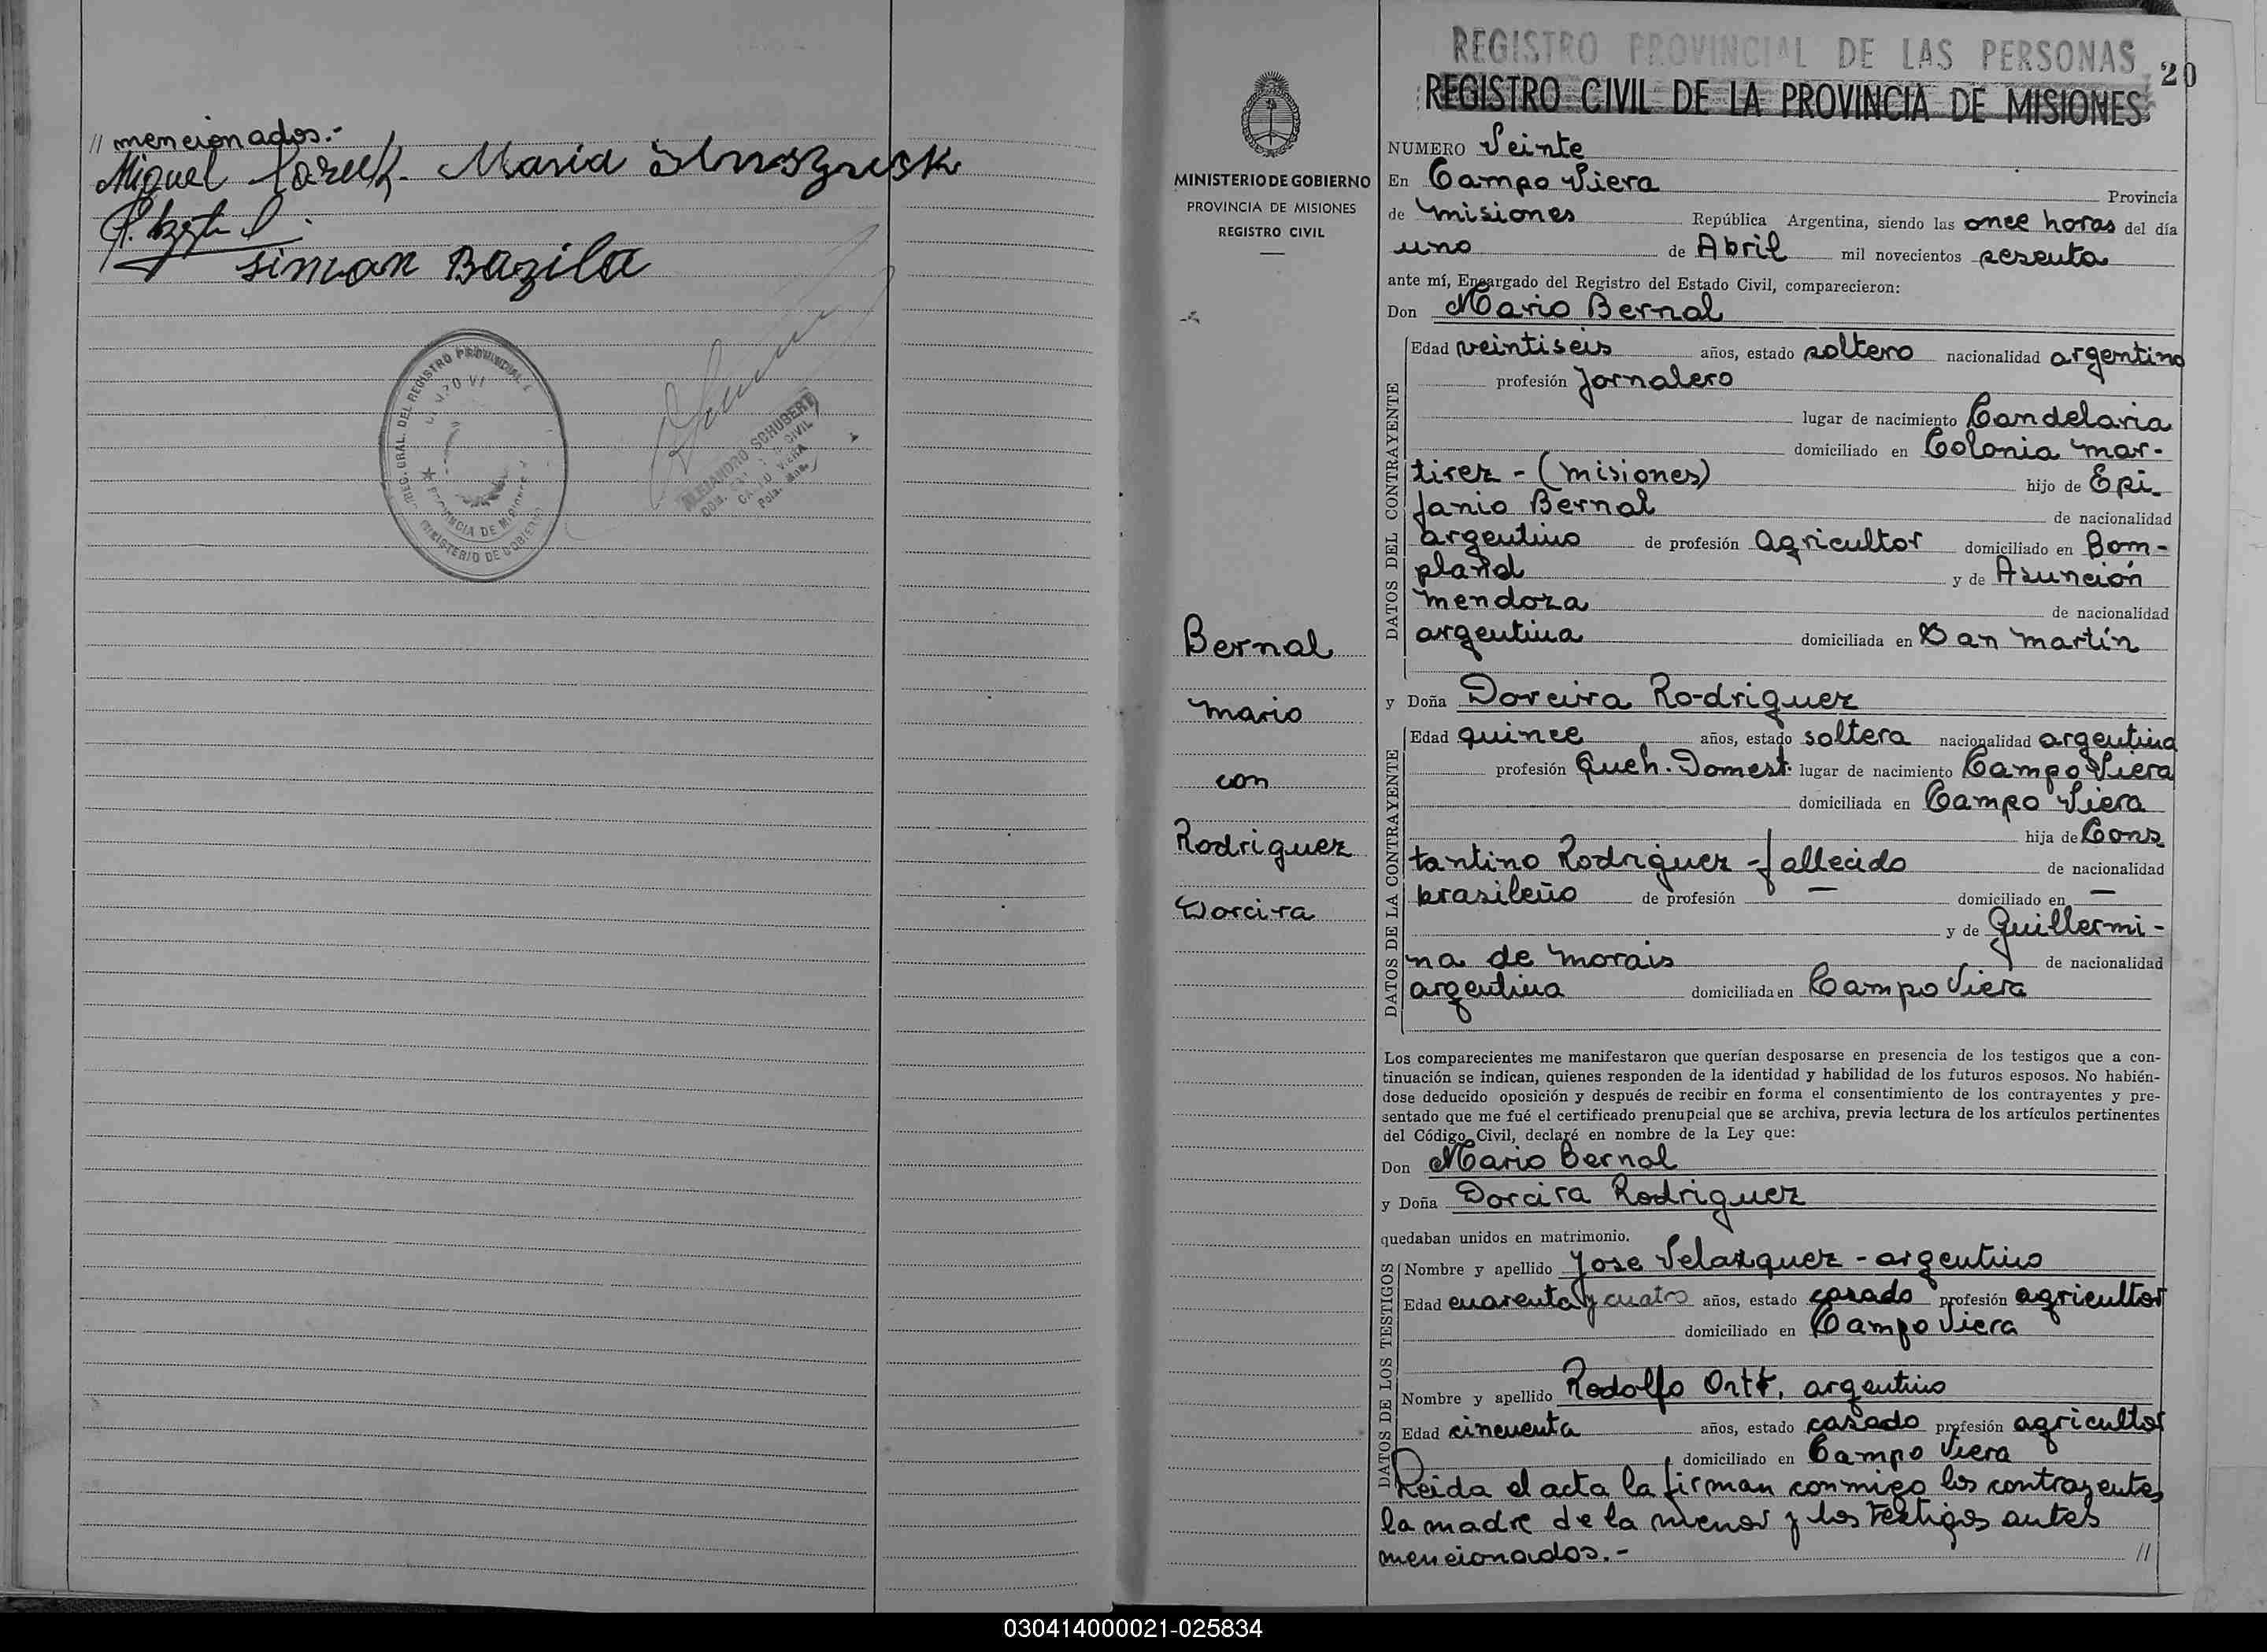 // mencionados.-
Miguel
Maria
Siman Bazila
REG. GRAL. DEL REGISTRO PROVINCIAL
PROVINCIA DE MISIONES
MINISTERIO DE GOBIERNO
ALEJANDRO SCHUBERT
MINISTERIO DE GOBIERNO
PROVINCIA DE MISIONES
REGISTRO CIVIL
Bernal
Mario
con
Rodriguez
Dorcira
REGISTRO PROVINCIAL DE LAS PERSONAS
20
REGISTRO CIVIL DE LA PROVINCIA DE MISIONES
NUMERO Veinte
En Campo Viera Provincia
de Misiones República Argentina, siendo las once horas del día
uno de Abril mil novecientos sesenta
ante mí, Encargado del Registro del Estado Civil, comparecieron:
Don Mario Bernal
DATOS DEL CONTRAYENTE
Edad veintiseis años, estado soltero nacionalidad argentino
profesión Jornalero
lugar de nacimiento Candelaria
domiciliado en Colonia Mar-
tirez - (Misiones) hijo de Epi-
fanio Bernal de nacionalidad
argentino de profesión Agricultor domiciliado en Bom-
pland y de Asunción
Mendoza de nacionalidad
argentina domiciliada en San Martín
y Doña Dorcira Rodriguez
DATOS DE LA CONTRAYENTE
Edad quince años, estado soltera nacionalidad argentina
profesión Queh. Domest. lugar de nacimiento Campo Viera
domiciliada en Campo Viera
hija de Cons
tantino Rodriguez - fallecido de nacionalidad
brasileño de profesión — domiciliado en —
y de Guillermi-
na de Morais de nacionalidad
argentina domiciliada en Campo Viera
Los comparecientes me manifestaron que querían desposarse en presencia de los testigos que a con-
tinuación se indican, quienes responden de la identidad y habilidad de los futuros esposos. No habién-
dose deducido oposición y después de recibir en forma el consentimiento de los contrayentes y pre-
sentado que me fué el certificado prenupcial que se archiva, previa lectura de los artículos pertinentes
del Código Civil, declaré en nombre de la Ley que:
Don Mario Bernal
y Doña Dorcira Rodriguez
quedaban unidos en matrimonio.
DATOS DE LOS TESTIGOS
Nombre y apellido Jose Velazquez - argentino
Edad cuarenta y cuatro años, estado casado profesión agricultor
domiciliado en Campo Viera
Nombre y apellido Rodolfo Ortt, argentino
Edad cincuenta años, estado casado profesión agricultor
domiciliado en Campo Viera
Leida el acta la firman conmigo los contrayentes,
la madre de la menor y los testigos antes
mencionados.- //
030414000021-025834